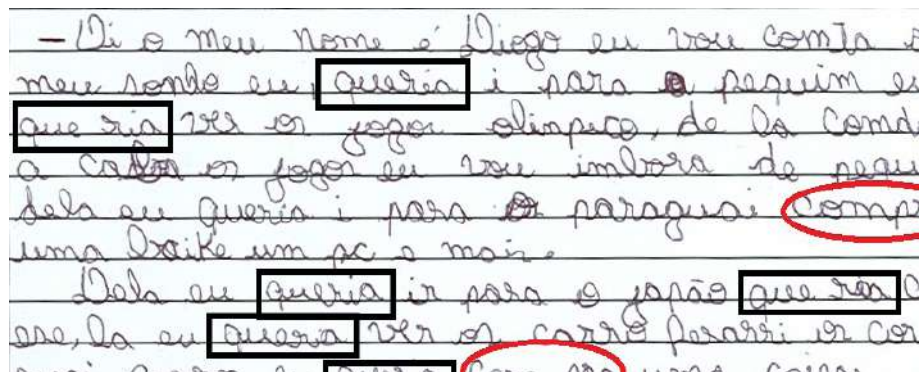 — Di o meu nome é Diogo eu vou comta o
meu sonho eu, queria i para o pequim e
que ria ver os jogos olimpico, de la comd
a caba os jogos eu vou imbora de pequ
dela eu queria i para paraguai comp
uma baike um pc o mais.
Dela eu queria ir para o japão que ria
ese, la eu queria ver os carro ferarri os cor